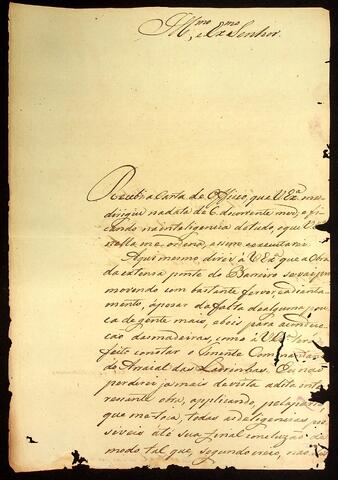 Illmo e Exmo Senhor.
Recebi a Carta de Officio, que V Exa me
dirigiu na data de 6 do corrente mez, e fi
cando na inteligencia de tudo, o que V E
nella me ordena, assim executarei.
Aqui mesmo direi a V Exa que a Obra
da extensa ponte do Barreiro se vai pro
movendo com bastante fervor, e adianta
mento, apezar da falta de alguma pou
ca de gente mais, e bois para a condu
cção das madeiras, como a V E terá
feito constar o Tenente Commandan
do Arraial das Lavrinhas. Eu não
perderei jamais de vista a dita inte
ressante obra, applicando, pela parte
que me toca, todas as deligencias pos
siveis até sua final concluzão de
modo tal que, segundo creio, não